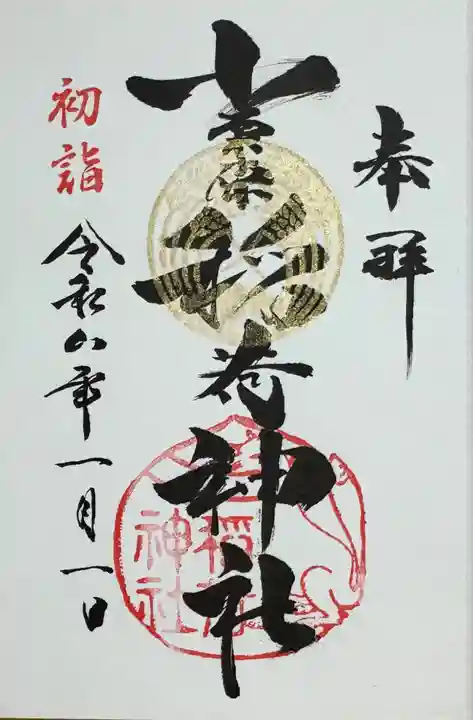 奉拝
稲荷神社
初詣
令和六年一月一日
稲荷
神社